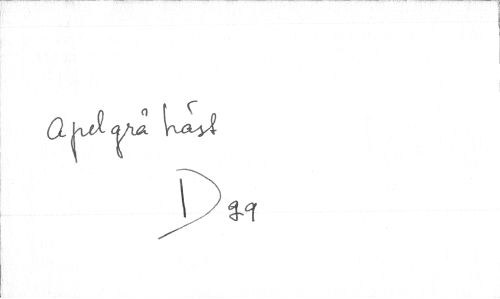 Apelgrå häst
D 99